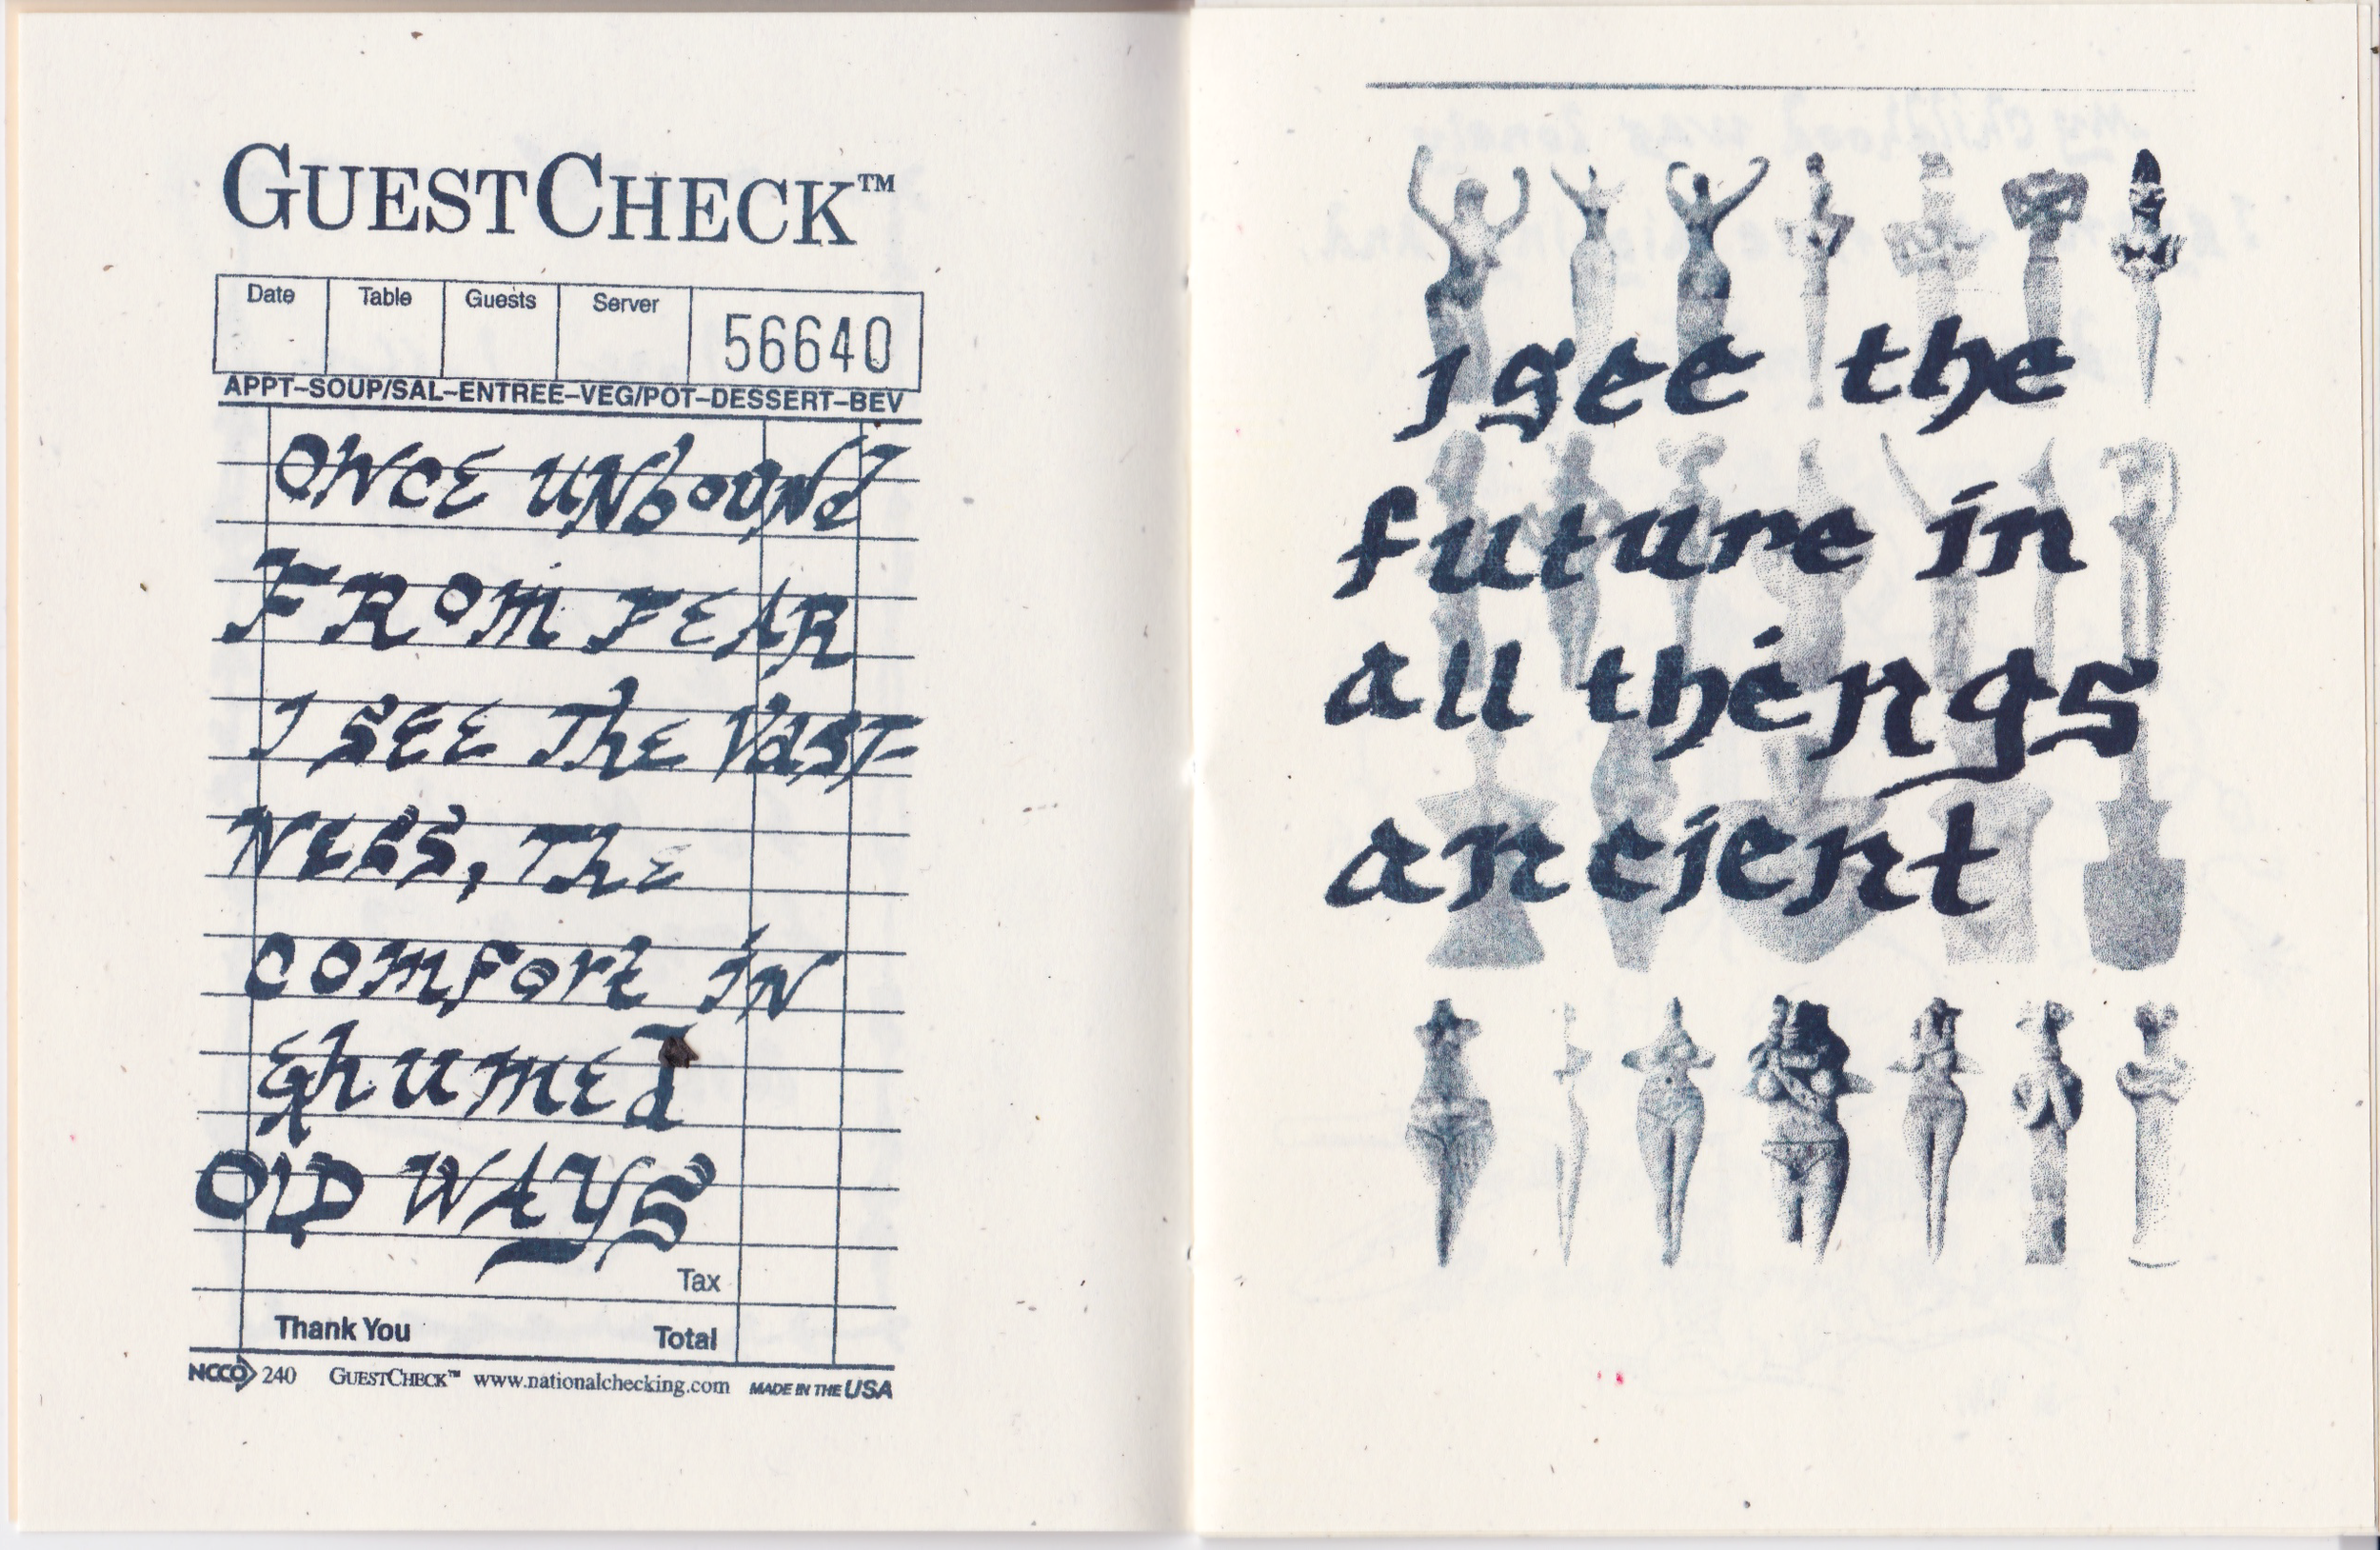 GUESTCHECK™
Date Table Guests Server 56640
APPT–SOUP/SAL–ENTREE–VEG/POT–DESSERT–BEV
ONCE UNbOUNd
FROM FEAR
I SEE The VAST
NESS, The
COMFORT IN
EXhUMED
OLD WAYS
Tax
Thank You Total
NCCO 240 GUESTCHECK™ www.nationalchecking.com MADE IN THE USA
i see the
future in
all things
ancient
my childhood was lonely